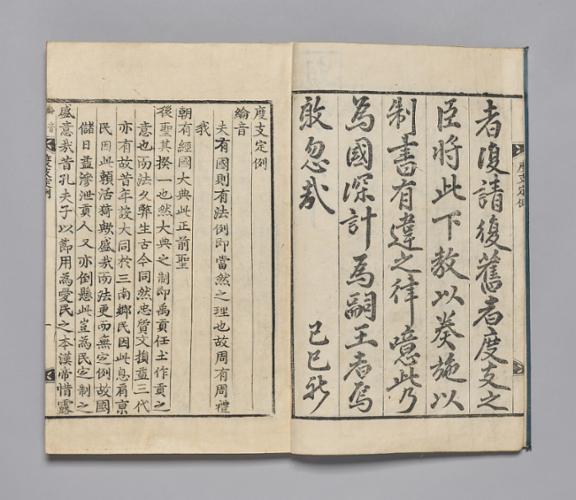 度支定例
者復請復舊者度支之
臣將此下教以奏施以
制書有違之律噫此乃
為國深計為嗣王者焉
敢忽哉
己巳秋
度支定例
綸音
夫有國則有法例即當然之理也故周有周禮
我
朝有經國大典此正前聖
後聖其揆一也然大典之制即禹貢任土作貢之
意也而法久弊生古今同然忠質文損益三代
亦有故昔年設大同於三南鄉民因此息肩京
民因此賴活猗歟盛哉而法更而無定例故國
儲日益滲泄貢人又亦倒懸此豈為民定制之
盛意哉昔孔夫子以節用為愛民之本漢帝惜露
度支定例